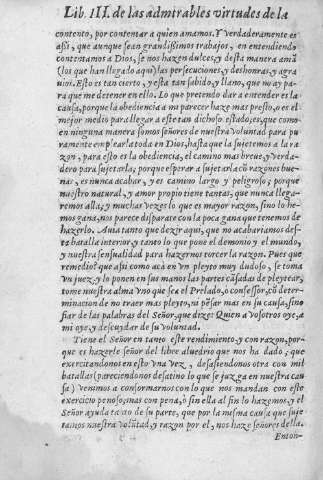 Lib. III. de las admirables virtudes de la
contento, por contentar a quien amamos. Y verdaderamente es
assi, que aunque sean grandissimos trabajos, en entendiendo
contentamos a Dios, se nos hazen dulces, y desta manera amã
(los que han llegado aqui) las persecuciones, y deshonras, y agra
uios. Esto es tan cierto, y esta tan sabido, y llano, que no ay pa
ra que me detener en ello. Lo que pretendo dar a entender es la
causa, porque la obediencia a mi parecer haze mas presto, o es el
mejor medio para llegar a este tan dichoso estado, es, que como
en ninguna manera somos señores de nuestra voluntad para pu
ramente emplearla toda en Dios, hasta que la sujetemos a la ra
zon, para esto es la obediencia, el camino mas breue, y verda-
dero para sujetarla; porque esperar a sujetarla cõ razones bue-
nas, es nunca acabar, y es camino largo y peligroso; porque
nuestro natural, y amor propio tiene tantas, que nunca llega-
remos alla; y muchas vezes lo que es mayor razon, sino lo he-
mos gana, nos parece disparate con la poca gana que tenemos de
hazerlo. Auia tanto que dezir aqui, que no acabariamos des-
ta batalla interior, y tanto lo que pone el demonio y el mundo,
y nuestra sensualidad para hazernos torcer la razon. Pues que
remedio? que assi como acà en vn pleyto muy dudoso, se toma
vn juez, y lo ponen en sus manos las partes cãsadas de pleytear,
tome nuestra alma vno que sea el Prelado, o confessor, cõ deter-
minacion de no traer mas pleyto, ni pẽsar mas en su causa, sino
fiar de las palabras del Señor, que dize: Quien a vosotros oye, a
mi oye, y descuydar de su voluntad.
Tiene el Señor en tanto este rendimiento, y con razon, por-
que es hazerle señor del libre aluedrio que nos ha dado, que
exercitandonos en esto vna vez, desasiendonos otra con mil
batallas (pareciendonos desatino lo que se juzga en nuestra cau
sa) venimos a conformarnos con lo que nos mandan con este
exercicio penoso, mas con pena, ò sin ella al fin lo hazemos, y el
Señor ayuda tanto de su parte, que por la misma causa que suje
tamos nuestra volũtad, y razon por el, nos haze señores della.
Enton-